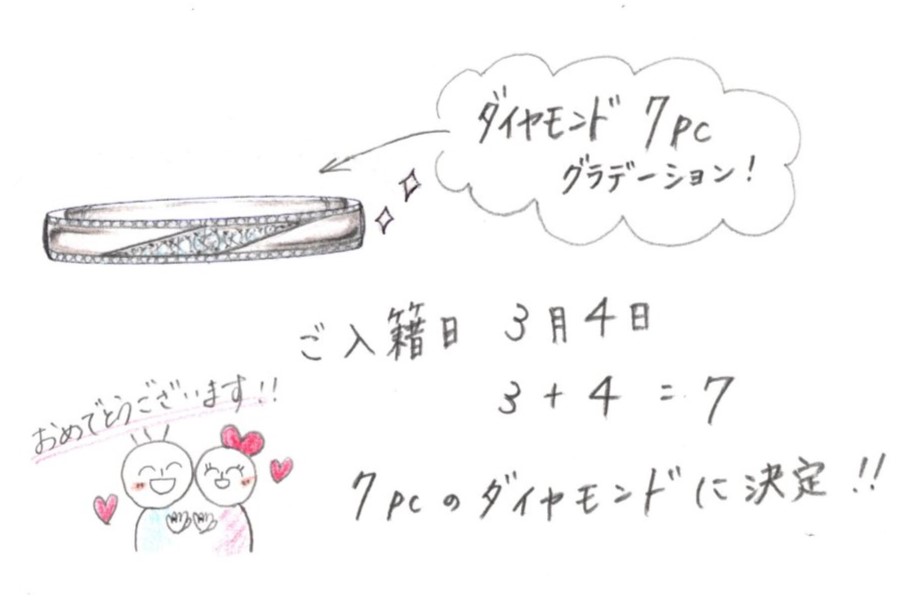 ダイヤモンド 7pc
グラデーション!
ご入籍日 3月4日
3 + 4 = 7
おめでとうございます!!
7pcのダイヤモンドに決定!!